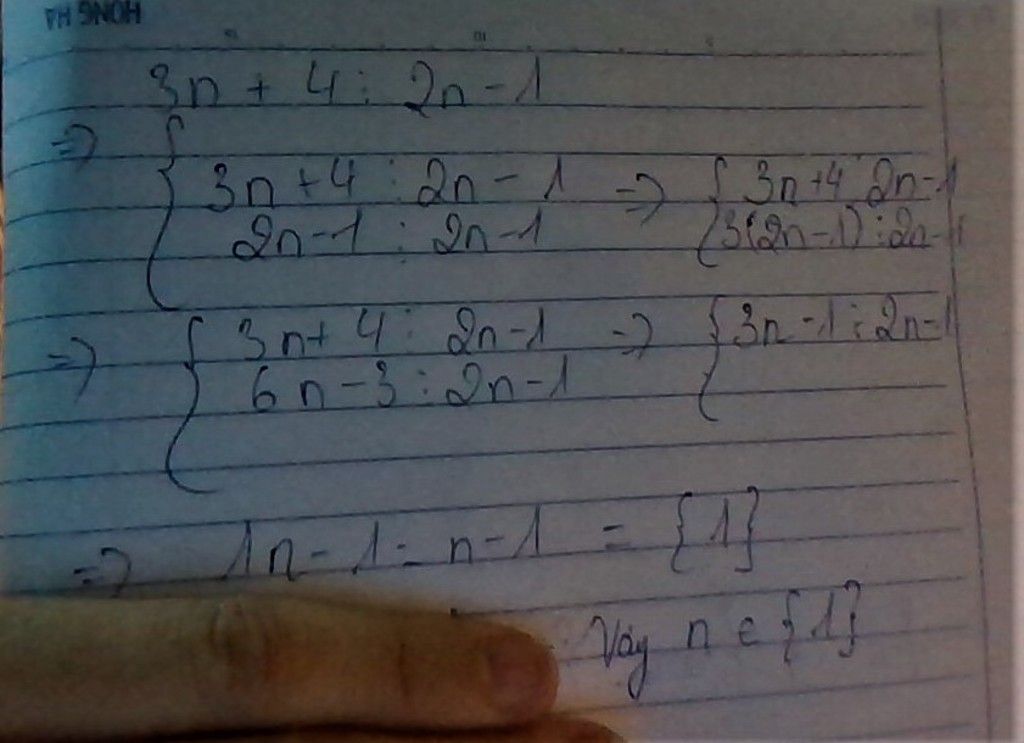 HONG HA
3n + 4 ⋮ 2n - 1
=> { 3n + 4 ⋮ 2n - 1 => { 3n + 4 ⋮ 2n - 1
2n - 1 ⋮ 2n - 1 3(2n - 1) ⋮ 2n - 1
=> { 3n + 4 ⋮ 2n - 1 => { 3n - 1 ⋮ 2n - 1
6n - 3 ⋮ 2n - 1
=> 1n - 1 - n - 1 = {1}
Vậy n ∈ {1}